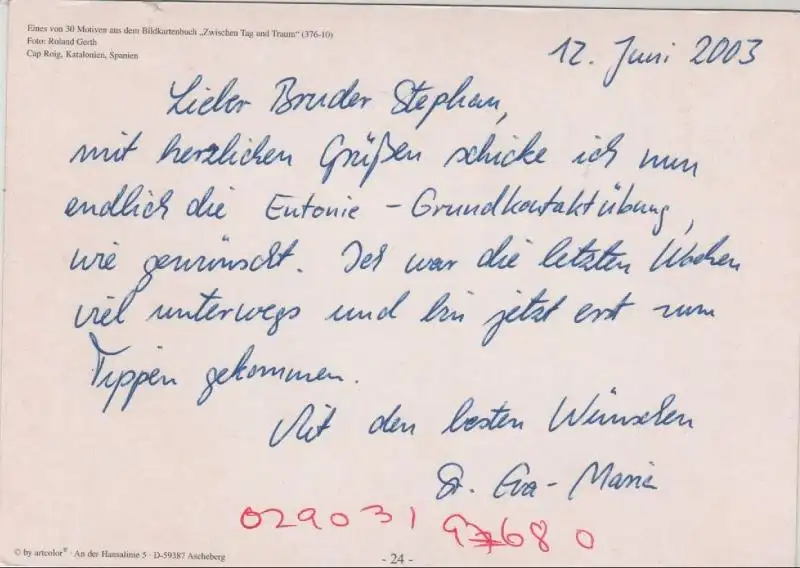 Eines von 30 Motiven aus dem Bildkartenbuch „Zwischen Tag und Traum“ (376-10)
Foto: Roland Gerth
Cap Roig, Katalonien, Spanien
12. Juni 2003
Lieber Bruder Stephan,
mit herzlichen Grüßen schicke ich nun
endlich die Eutonie - Grundkontaktübung,
wie gewünscht. Ich war die letzten Wochen
viel unterwegs und bin jetzt erst zum
Tippen gekommen.
Mit den besten Wünschen
Sr. Eva-Maria
029031 97680
© by artcolor® · An der Hansalinie 5 · D-59387 Ascheberg
- 24 -